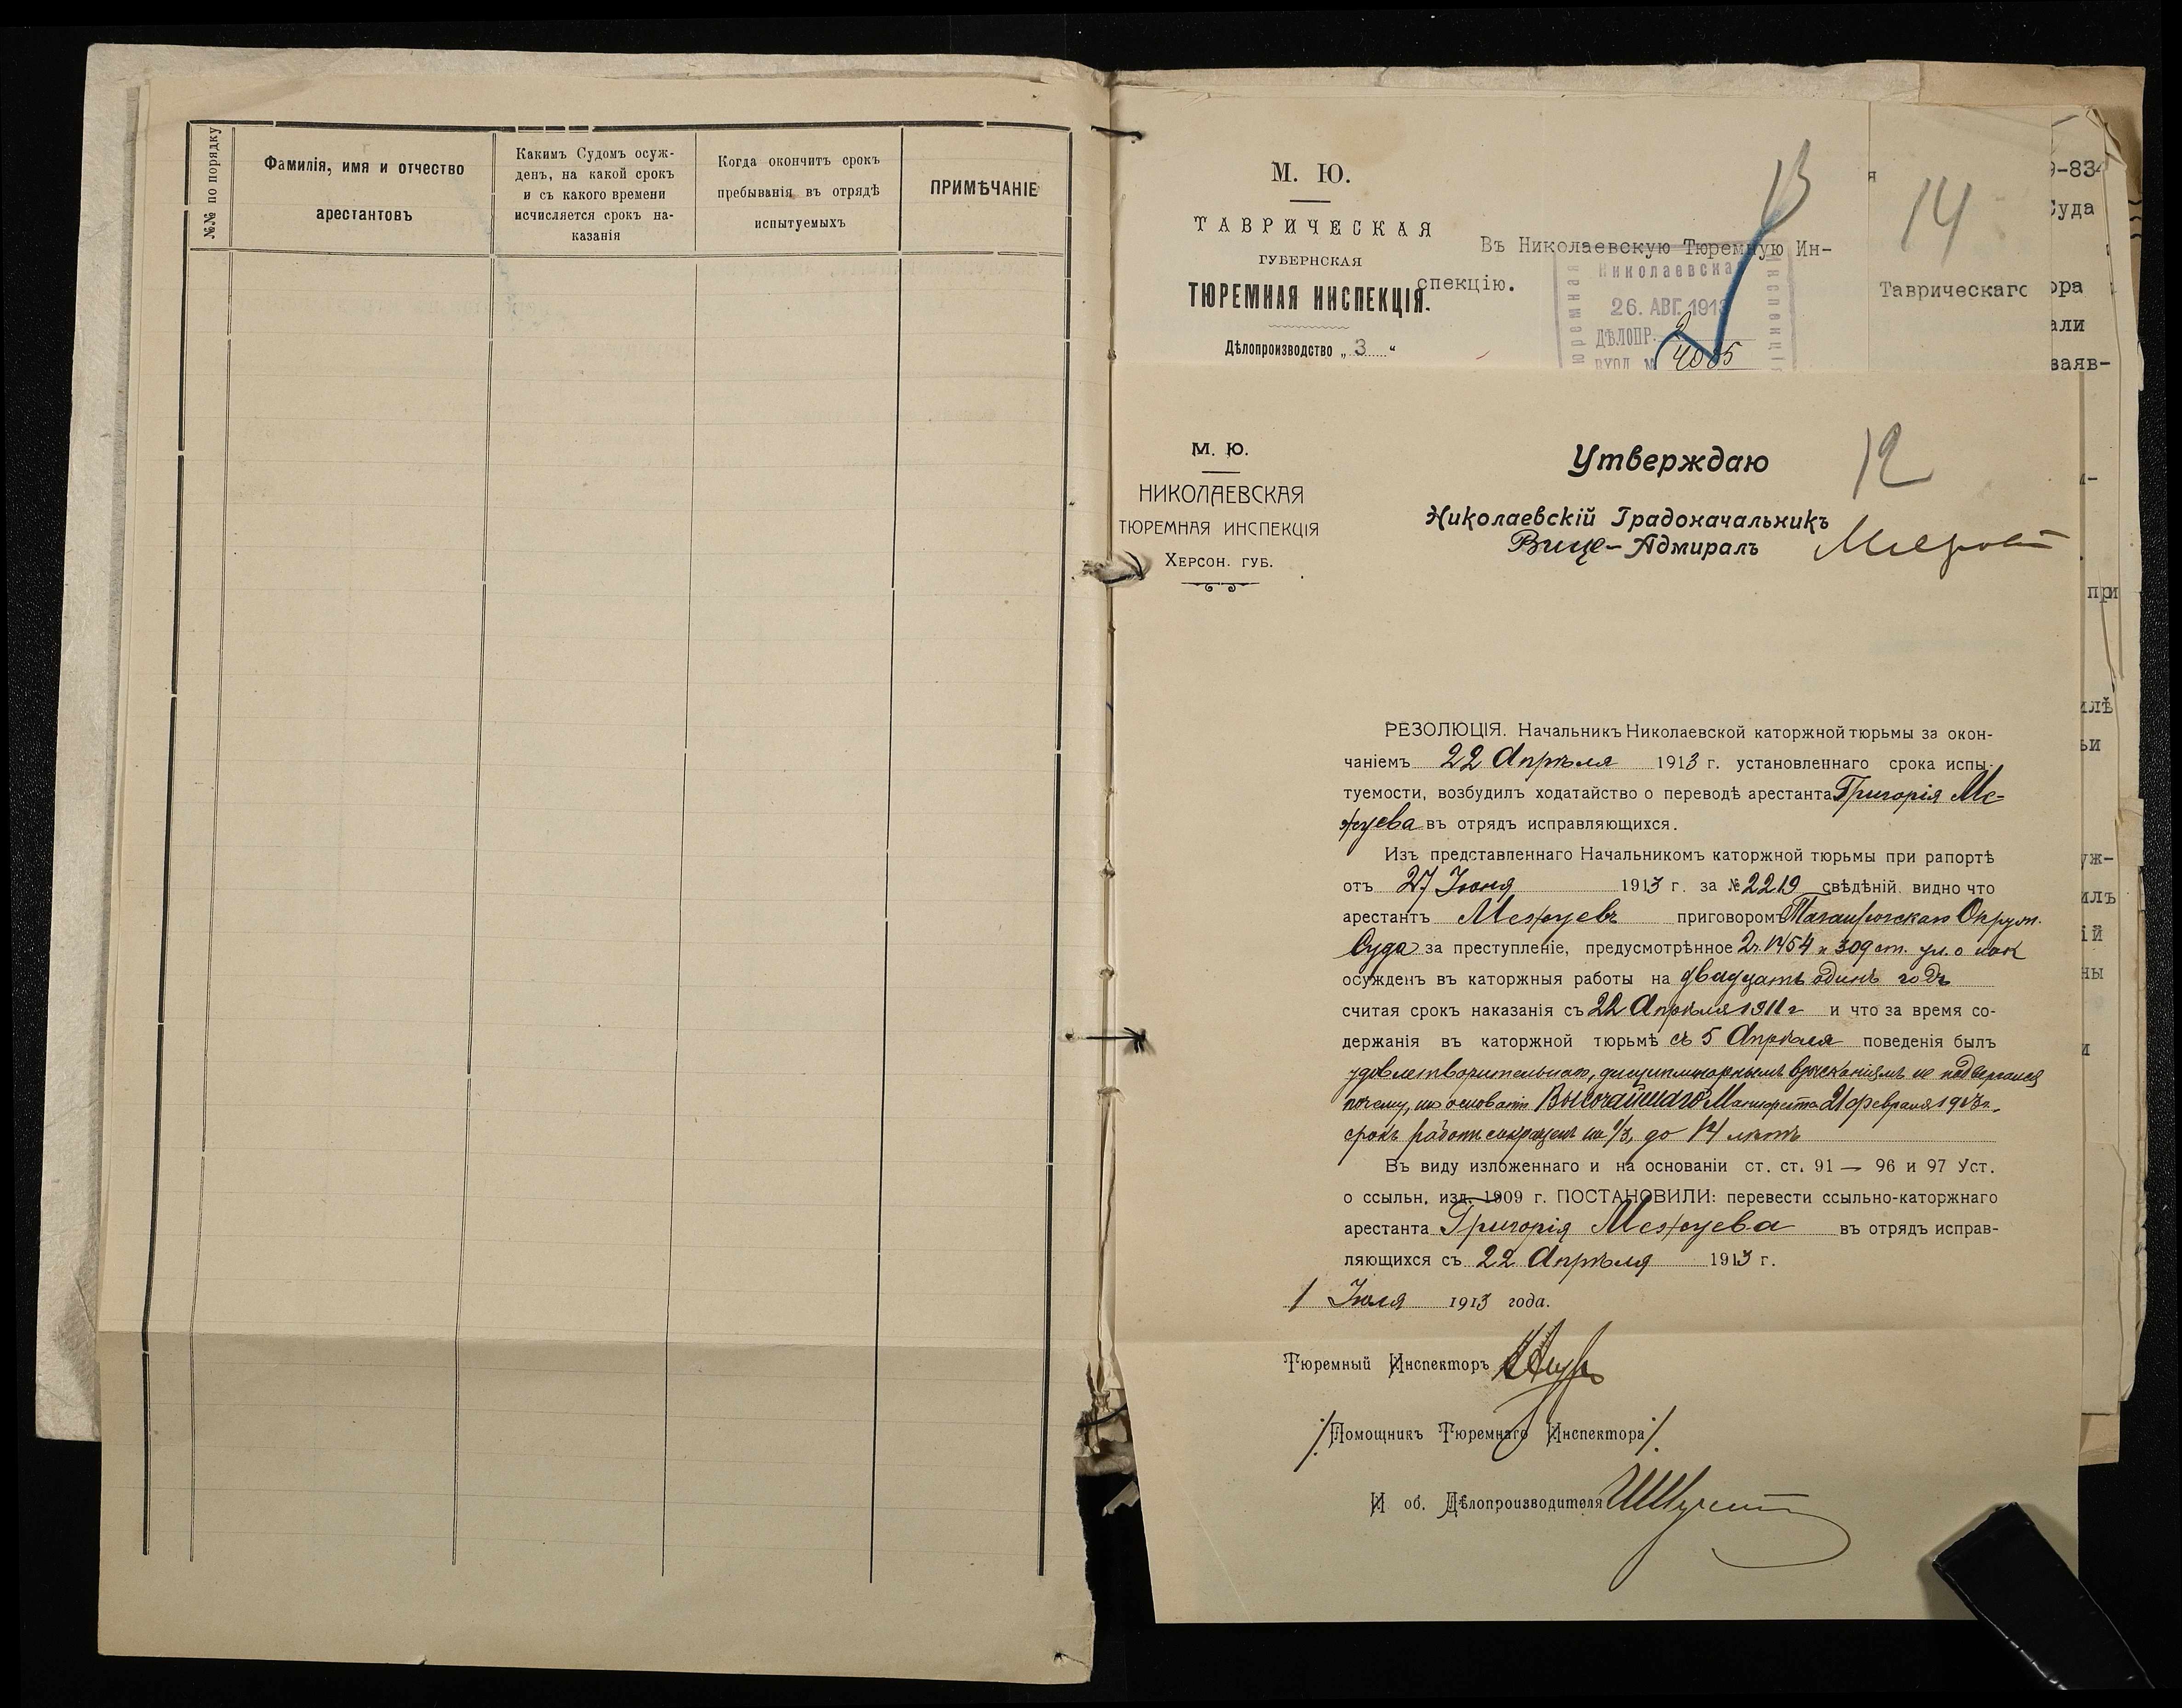 №№ по порядку
Фамилія, имя и отчество
арестантовъ
Какимъ Судомъ осуж-
денъ, на какой срокъ
и съ какого времени
исчисляется срокъ на-
казанія
Когда окончитъ срокъ
пребыванія въ отрядѣ
испытуемыхъ
ПРИМѢЧАНІЕ
М. Ю.
ТАВРИЧЕСКАЯ
ГУБЕРНСКАЯ
ТЮРЕМНАЯ ИНСПЕКЦІЯ.
Дѣлопроизводство „ 3 "
13
Въ Николаевскую Тюремную Ин-
спекцію.
Николаевская
26. АВГ. 1913
ДѢЛОПР. 2
ВХОД. № 4085
я
14
Таврическаго
9-834
Суда
ора
али
заяв-
при
М. Ю.
НИКОЛАЕВСКАЯ
ТЮРЕМНАЯ ИНСПЕКЦІЯ
Херсон. губ.
12
Утверждаю
Николаевскій Градоначальникъ
Вице-Адмиралъ
РЕЗОЛЮЦІЯ. Начальникъ Николаевской каторжной тюрьмы за окон-
чаніемъ 22 Апрѣля 1913 г. установленнаго срока испы-
туемости, возбудилъ ходатайство о переводѣ арестанта Григорія Ме-
жуева въ отрядъ исправляющихся.
Изъ представленнаго Начальникомъ каторжной тюрьмы при рапортѣ
отъ 27 Іюня 1913 г. за № 2219 свѣдѣній, видно что
арестантъ Межуевъ приговоромъ Таганрогскаго Окружн.
Суда за преступленіе, предусмотрѣнное 2 ч. 1454 и 309 ст. ул. о нак
осужденъ въ каторжныя работы на двадцать одинъ годъ
считая срокъ наказанія съ 22 Апрѣля 1911 г и что за время со-
держанія въ каторжной тюрьмѣ съ 5 Апрѣля поведенія былъ
удовлетворительнаго, дисциплинарнымъ взысканіямъ не подвергался
почему, на основаніи Высочайшаго Манифеста 21 февраля 1913 г.,
срокъ работъ сокращенъ на 1/3, до 14 лѣтъ
Въ виду изложеннаго и на основаніи ст. ст. 91 — 96 и 97 Уст.
о ссыльн. изд. 1909 г. ПОСТАНОВИЛИ: перевести ссыльно-каторжнаго
арестанта Григорія Межуева въ отрядъ исправ-
ляющихся съ 22 Апрѣля 1913 г.
1 Іюля 1913 года.
Тюремный Инспекторъ
/Помощникъ Тюремнаго Инспектора/.
И об. Дѣлопроизводителя